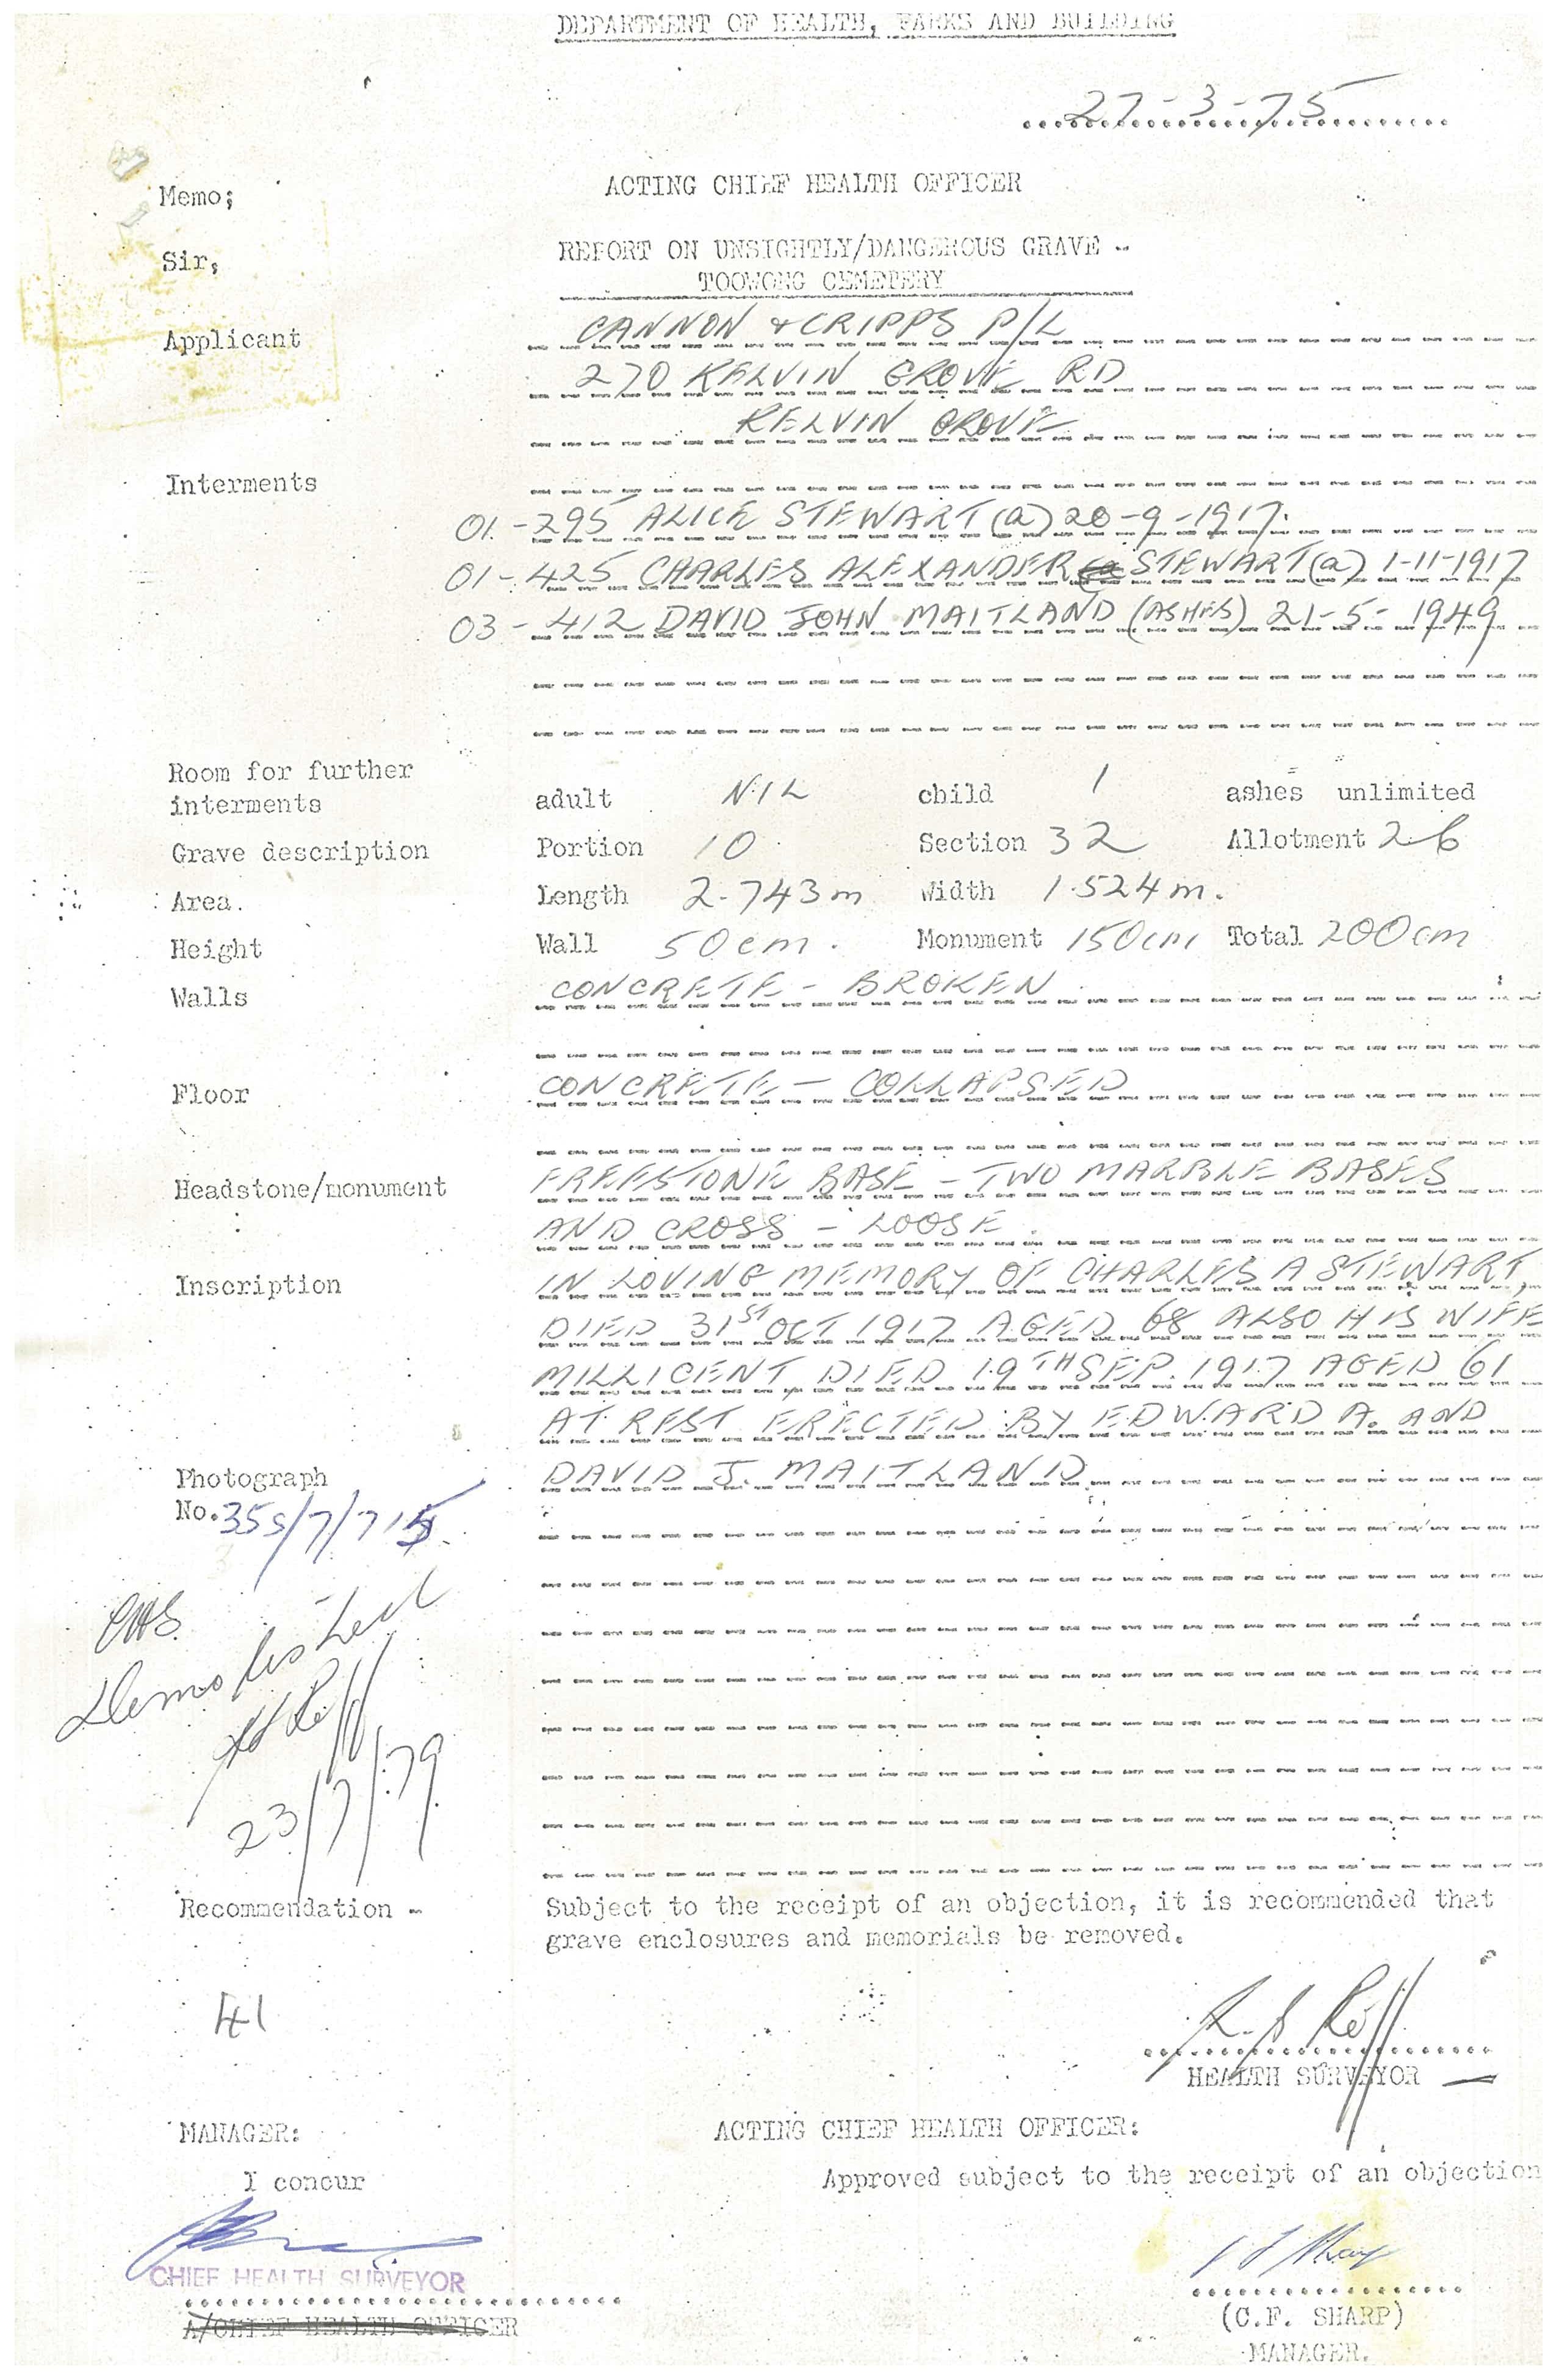 DEPARTMENT OF HEALTH, PARKS AND BUILDING
27-3-75
Memo; ACTING CHIEF HEALTH OFFICER
Sir, REPORT ON UNSIGHTLY/DANGEROUS GRAVE -
TOOWONG CEMETERY
Applicant CANNON & CRIPPS P/L
270 KELVIN GROVE RD
KELVIN GROVE
Interments
01-295 ALICE STEWART (a) 20-9-1917.
01-425 CHARLES ALEXANDER STEWART (a) 1-11-1917
03-412 DAVID JOHN MAITLAND (ASHES) 21-5-1949
Room for further
interments adult NIL child 1 ashes unlimited
Grave description Portion 10 Section 32 Allotment 26
Area. Length 2.743m Width 1.524m.
Height Wall 50cm. Monument 150cm Total 200cm
Walls CONCRETE - BROKEN
Floor CONCRETE - COLLAPSED
Headstone/monument FREESTONE BASE - TWO MARBLE BASES
AND CROSS - LOOSE.
Inscription IN LOVING MEMORY OF CHARLES A STEWART,
DIED 31ST OCT 1917 AGED 68 ALSO HIS WIFE
MILLICENT DIED 19TH SEP. 1917 AGED 61
AT REST ERECTED BY EDWARD A. AND
Photograph DAVID J. MAITLAND
No. 35s/7/715
CHS.
Demolished
23/7/79
Recommendation - Subject to the receipt of an objection, it is recommended that
grave enclosures and memorials be removed.
41
HEALTH SURVEYOR
MANAGER: ACTING CHIEF HEALTH OFFICER:
I concur Approved subject to the receipt of an objection
CHIEF HEALTH SURVEYOR
A/CHIEF HEALTH OFFICER
(C.F. SHARP)
MANAGER.